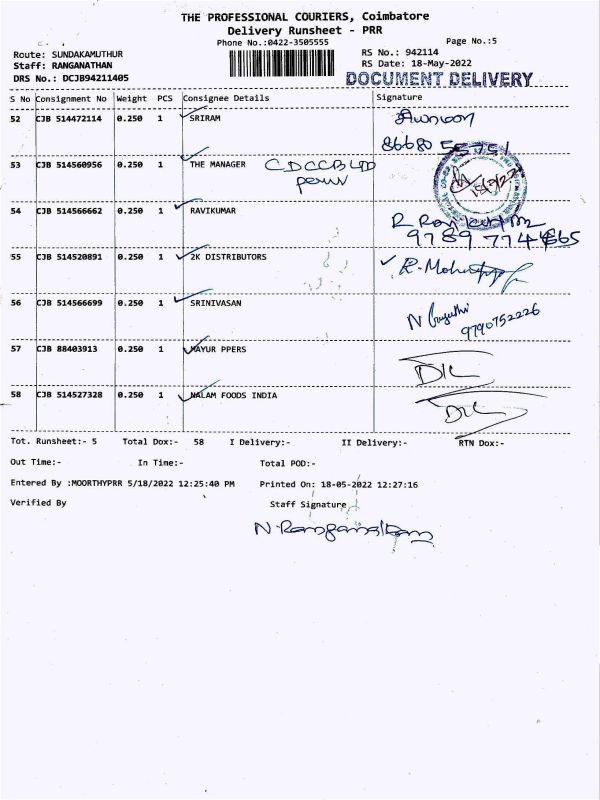 THE PROFESSIONAL COURIERS, Coimbatore
Delivery Runsheet - PRR
Phone No.:0422-3505555
Page No.:5
Route: SUNDAKAMUTHUR
RS No.: 942114
Staff: RANGANATHAN
RS Date: 18-May-2022
DRS No.: DCJB94211405
DOCUMENT DELIVERY
S No Consignment No Weight PCS Consignee Details Signature
52 CJB 514472114 0.250 1 SRIRAM
86680 55751
53 CJB 514560956 0.250 1 THE MANAGER CDCCB LTD
54 CJB 514566662 0.250 1 RAVIKUMAR
55 CJB 514520891 0.250 1 2K DISTRIBUTORS
56 CJB 514566699 0.250 1 SRINIVASAN
9790752226
57 CJB 88403913 0.250 1 MAYUR PPERS
58 CJB 514527328 0.250 1 NALAM FOODS INDIA
Tot. Runsheet:- 5 Total Dox:- 58 I Delivery:- II Delivery:- RTN Dox:-
Out Time:- In Time:- Total POD:-
Entered By :MOORTHYPRR 5/18/2022 12:25:40 PM Printed On: 18-05-2022 12:27:16
Verified By Staff Signature
N. Ranganathan